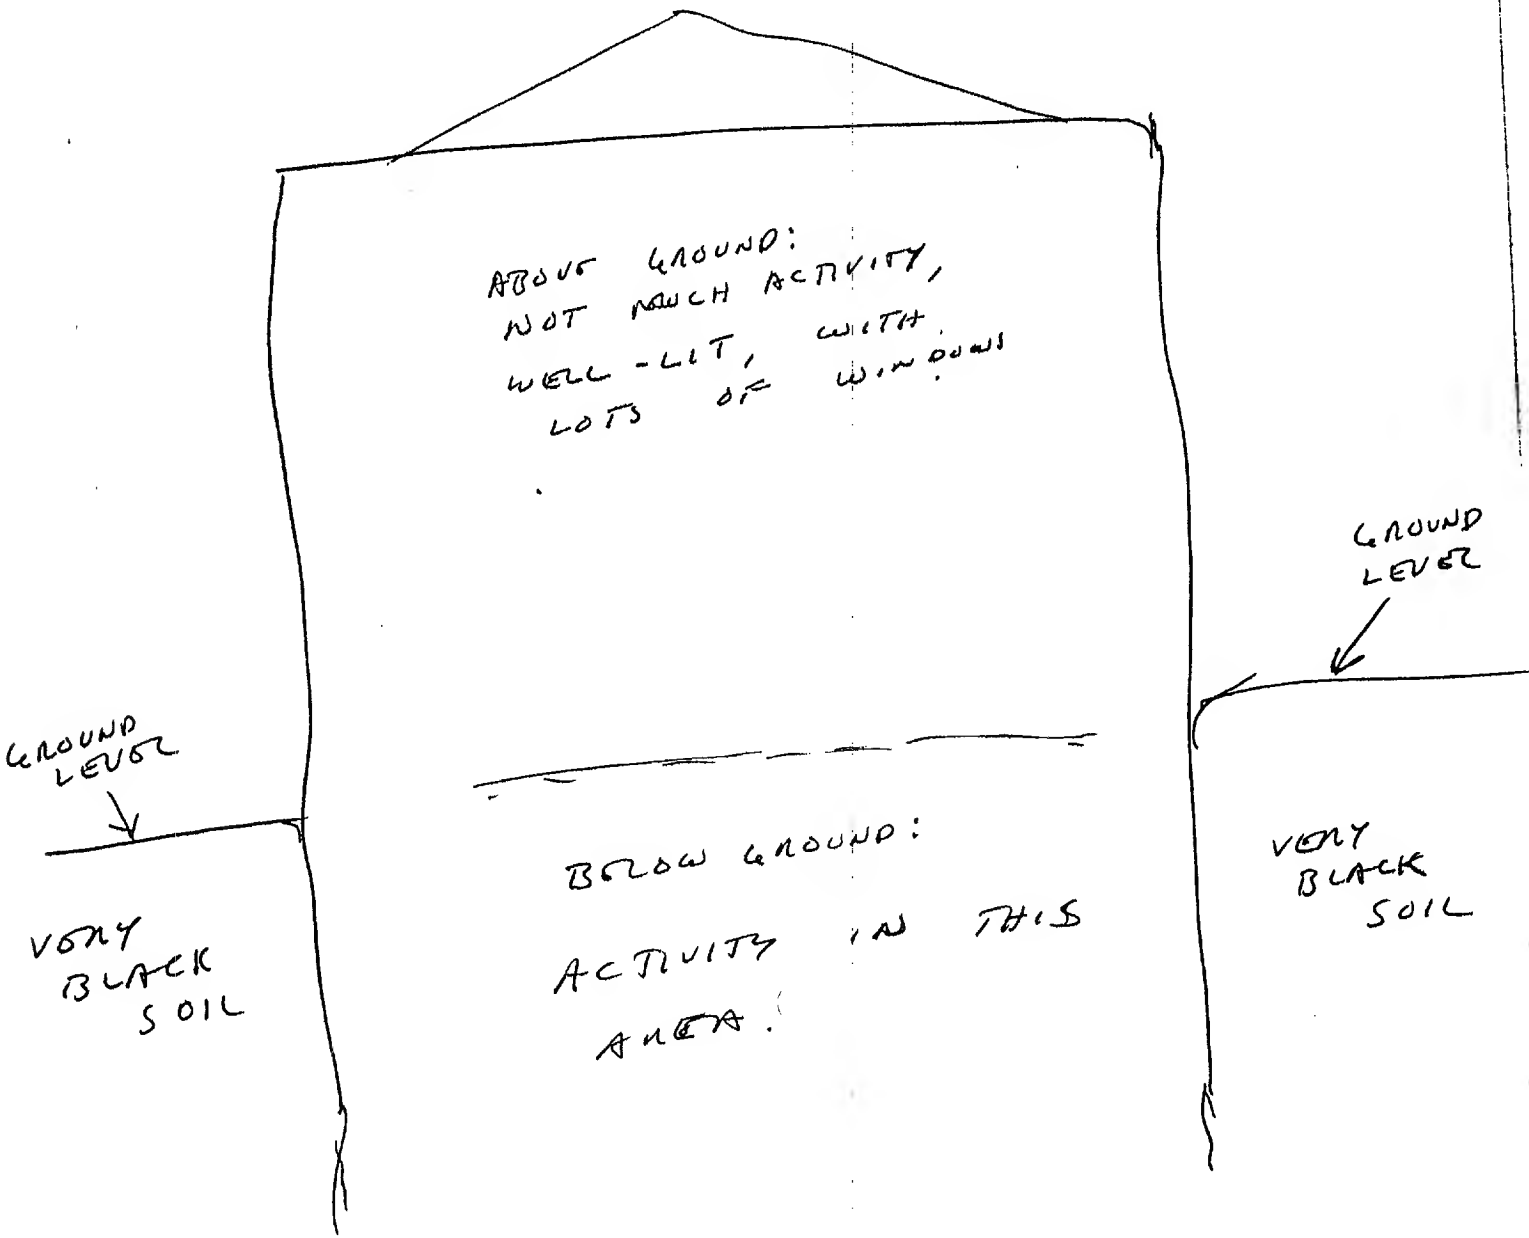 ABOVE GROUND:
NOT MUCH ACTIVITY,
WELL-LIT, WITH
LOTS OF WINDOWS
GROUND
LEVEL
GROUND
LEVEL
BELOW GROUND:
ACTIVITY IN THIS
AREA.
VERY
BLACK
SOIL
VERY
BLACK
SOIL